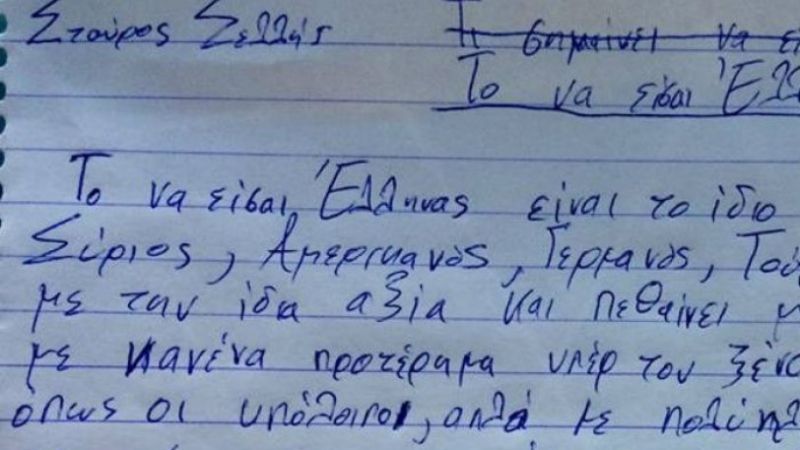 Σταύρος Σελλής
Τι σημαίνει να εί
Το να είσαι Έλλ
Το να είσαι Έλληνας είναι το ίδιο
Σύριος, Αμερικανός, Γερμανός, Τού
με την ίδια αξία και πεθαίνει μ
με κανένα προτέραμα υπέρ του ξένο
όπως οι υπόλοιποι, αλλά με πολύπλ